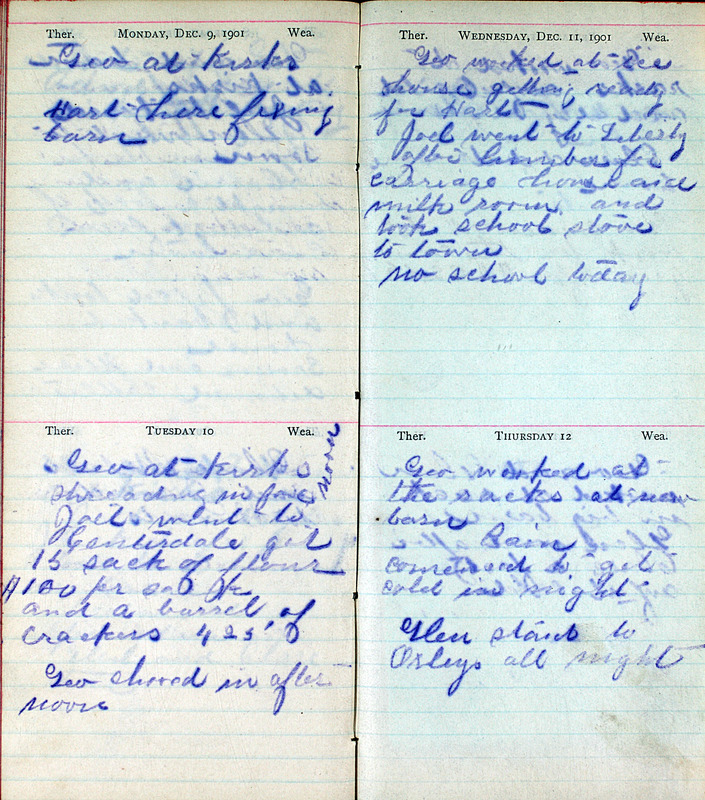 Ther. MONDAY, DEC. 9, 1901 Wea.
Geo at Kirks
Hart here fixing
barn
Ther. TUESDAY 10 Wea.
Geo at Kirks
shreading in fore
noon
Joel went to
Centerdale got
15 sack of flour
$1 00 pr sack
and a barrel of
crackers 4 25
Geo chored in after
noon
Ther. WEDNESDAY, DEC. 11, 1901 Wea.
Geo worked at ice
house getting ready
for Hart
Joel went to Liberty
after lumber for
carriage house and
milk room and
took school stove
to town
no school today
Ther. THURSDAY 12 Wea.
Geo worked at
the racks at new
barn
Rain
comenced to get
cold in night
Glen staid to
Oxleys all night